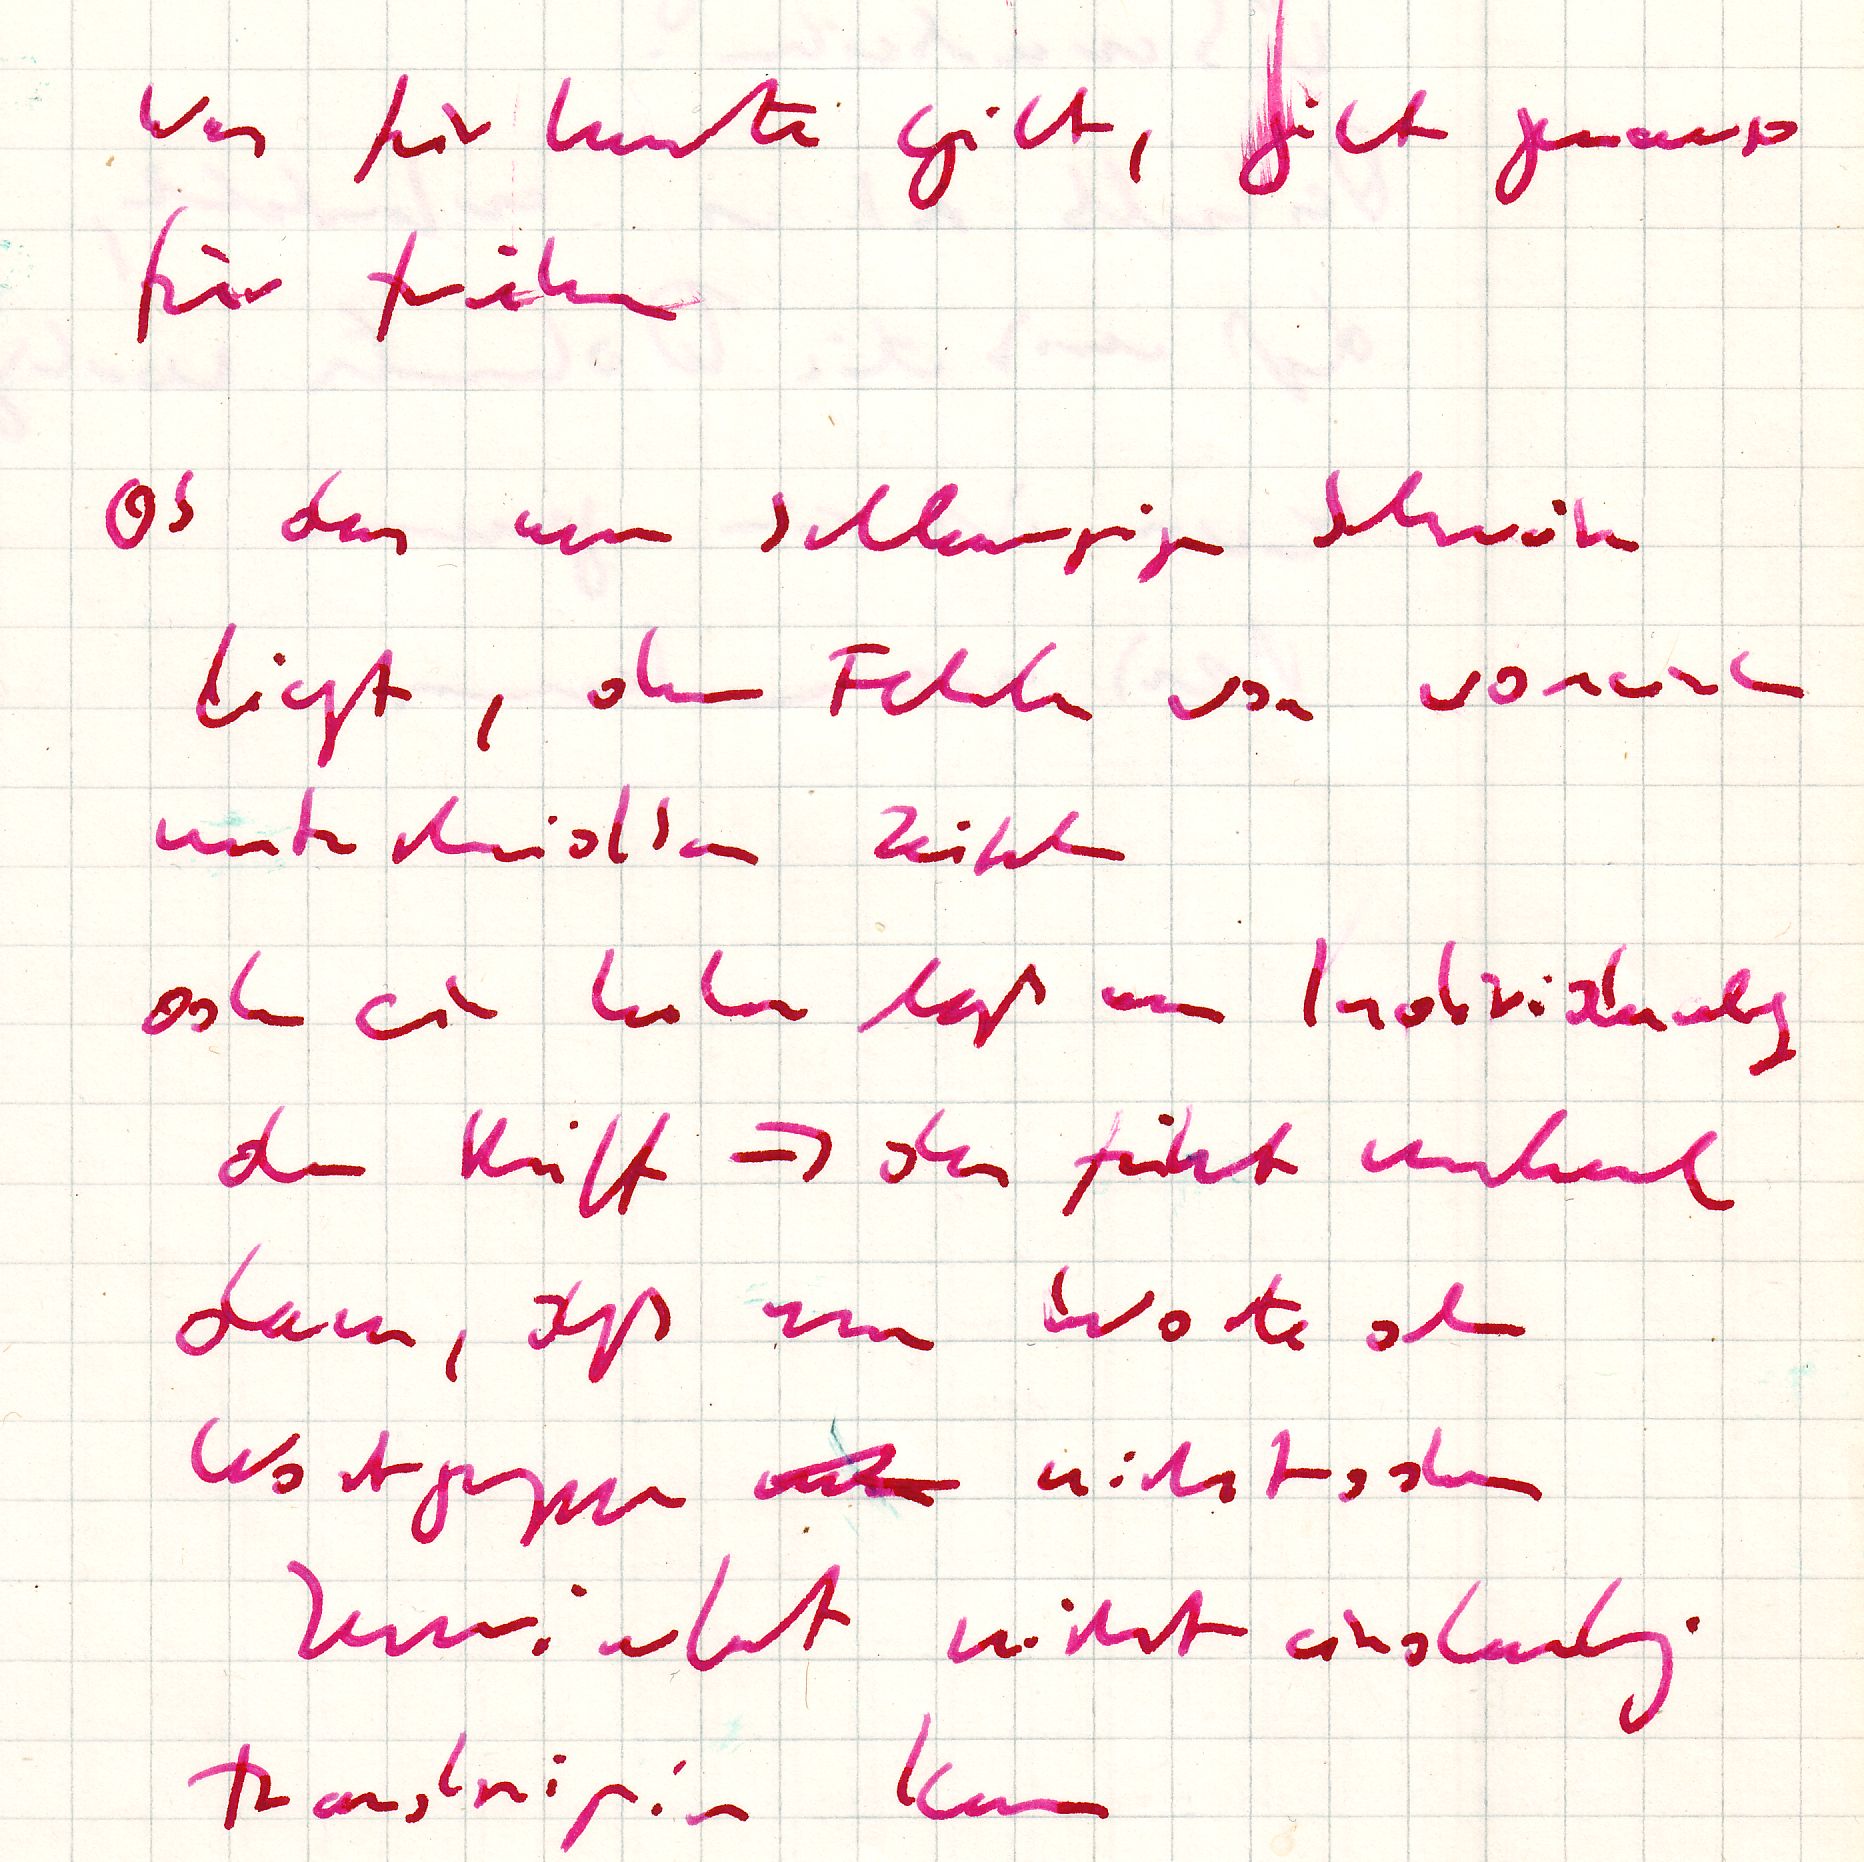 Was für heute gilt, gilt genauso
für früher
Ob das am schlampigen Schreiber
liegt, dem Fehlen von
unterscheidbaren Zeichen
oder ein hohes Maß an Individualität
der Schrift => das führt
dazu, daß man Worte oder
Wortgruppen nicht oder
zumindest nicht eindeutig
transkribieren kann